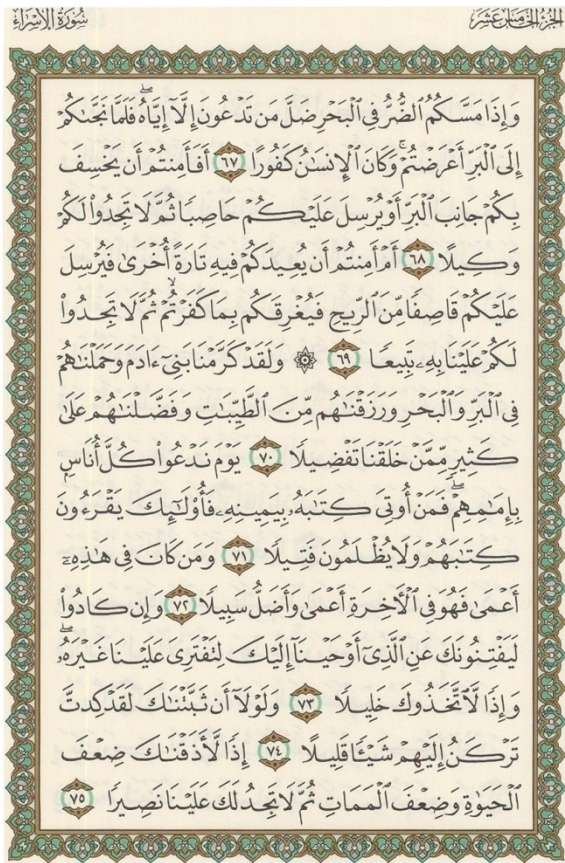 الجزء الخامس عشر
سورة الإسراء
وَإِذَا مَسَّكُمُ ٱلضُّرُّ فِى ٱلْبَحْرِ ضَلَّ مَن تَدْعُونَ إِلَّآ إِيَّاهُ ۖ فَلَمَّا نَجَّىٰكُمْ
إِلَى ٱلْبَرِّ أَعْرَضْتُمْ ۚ وَكَانَ ٱلْإِنسَٰنُ كَفُورًا ٦٧ أَفَأَمِنتُمْ أَن يَخْسِفَ
بِكُمْ جَانِبَ ٱلْبَرِّ أَوْ يُرْسِلَ عَلَيْكُمْ حَاصِبًا ثُمَّ لَا تَجِدُوا۟ لَكُمْ
وَكِيلًا ٦٨ أَمْ أَمِنتُمْ أَن يُعِيدَكُمْ فِيهِ تَارَةً أُخْرَىٰ فَيُرْسِلَ
عَلَيْكُمْ قَاصِفًا مِّنَ ٱلرِّيحِ فَيُغْرِقَكُم بِمَا كَفَرْتُمْ ۙ ثُمَّ لَا تَجِدُوا۟
لَكُمْ عَلَيْنَا بِهِۦ تَبِيعًا ٦٩ ۞ وَلَقَدْ كَرَّمْنَا بَنِىٓ ءَادَمَ وَحَمَلْنَٰهُمْ
فِى ٱلْبَرِّ وَٱلْبَحْرِ وَرَزَقْنَٰهُم مِّنَ ٱلطَّيِّبَٰتِ وَفَضَّلْنَٰهُمْ عَلَىٰ
كَثِيرٍ مِّمَّنْ خَلَقْنَا تَفْضِيلًا ٧٠ يَوْمَ نَدْعُوا۟ كُلَّ أُنَاسٍۭ
بِإِمَٰمِهِمْ ۖ فَمَنْ أُوتِىَ كِتَٰبَهُۥ بِيَمِينِهِۦ فَأُو۟لَٰٓئِكَ يَقْرَءُونَ
كِتَٰبَهُمْ وَلَا يُظْلَمُونَ فَتِيلًا ٧١ وَمَن كَانَ فِى هَٰذِهِۦٓ
أَعْمَىٰ فَهُوَ فِى ٱلْءَاخِرَةِ أَعْمَىٰ وَأَضَلُّ سَبِيلًا ٧٢ وَإِن كَادُوا۟
لَيَفْتِنُونَكَ عَنِ ٱلَّذِىٓ أَوْحَيْنَآ إِلَيْكَ لِتَفْتَرِىَ عَلَيْنَا غَيْرَهُۥ ۖ
وَإِذًا لَّٱتَّخَذُوكَ خَلِيلًا ٧٣ وَلَوْلَآ أَن ثَبَّتْنَٰكَ لَقَدْ كِدتَّ
تَرْكَنُ إِلَيْهِمْ شَيْـًٔا قَلِيلًا ٧٤ إِذًا لَّأَذَقْنَٰكَ ضِعْفَ
ٱلْحَيَوٰةِ وَضِعْفَ ٱلْمَمَاتِ ثُمَّ لَا تَجِدُ لَكَ عَلَيْنَا نَصِيرًا ٧٥